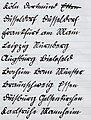 Köln Dortmund Essen
Düsseldorf Düsseldorf
Frankfurt am Main
Leipzig Nürnberg
Augsburg Bielefeld
Bochum Bonn Münster
Braunschweig Essen
Duisburg Gelsenkirchen
Karlsruhe Mannheim